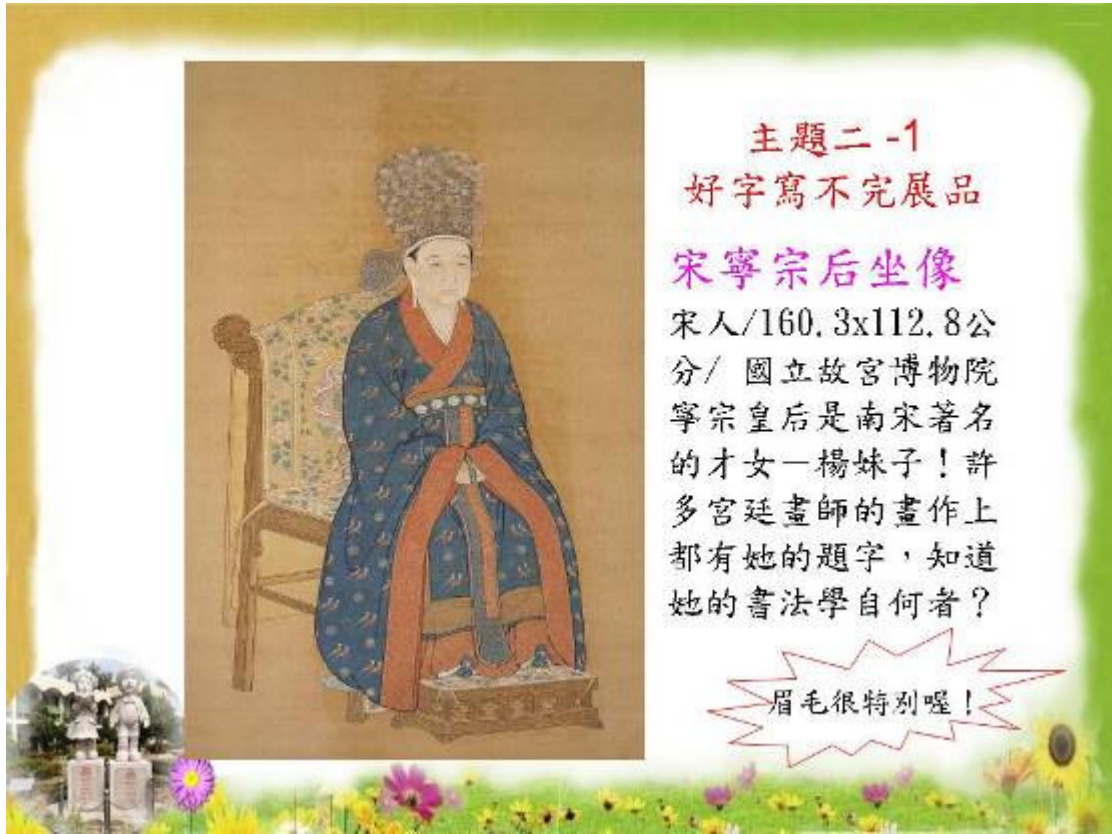 主題二 -1
好字寫不完展品
宋寧宗后坐像
宋人/160.3x112.8公
分/ 國立故宮博物院
寧宗皇后是南宋著名
的才女－楊妹子！許
多宮廷畫師的畫作上
都有她的題字，知道
她的書法學自何者？
眉毛很特別喔！